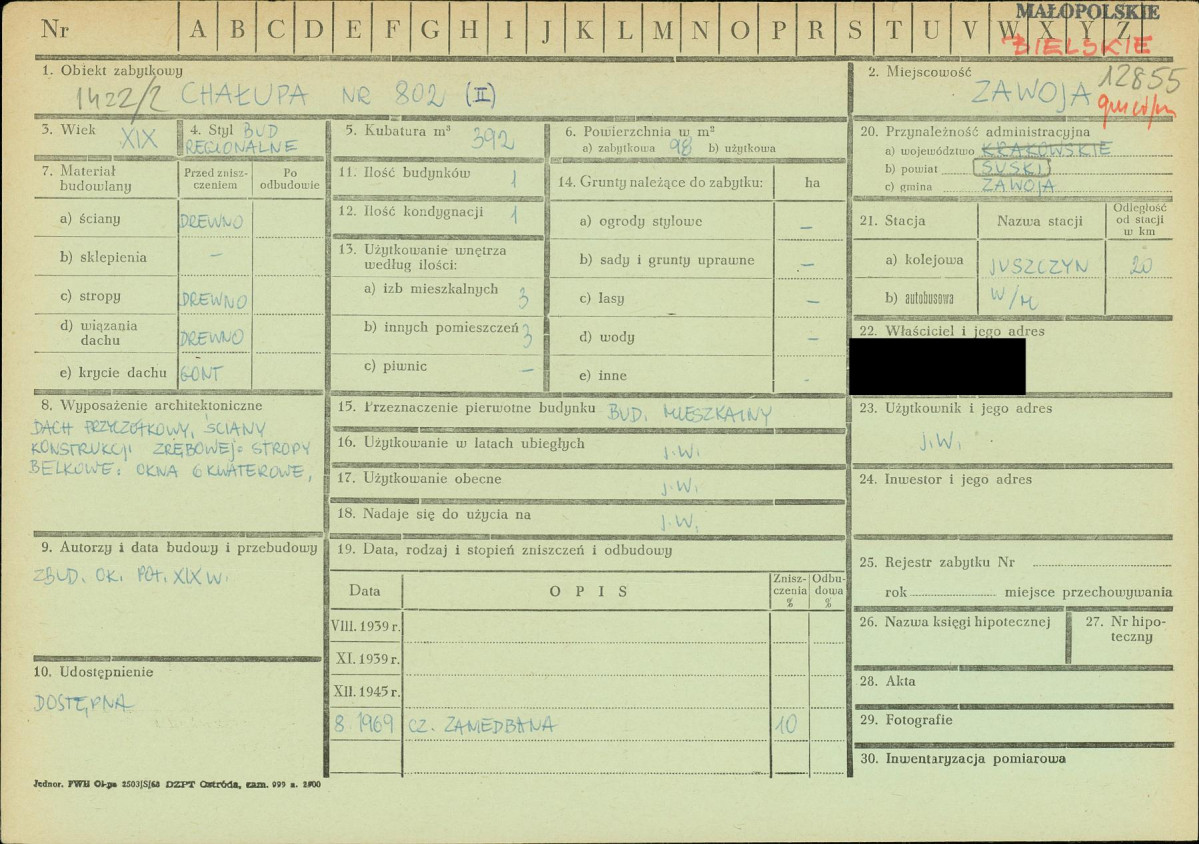 MAŁOPOLSKIE
Nr A B C D E F G H I J K L M N O P R S T U V W X Y Z
BIELSKIE
1. Obiekt zabytkowy
1422/2 CHAŁUPA NR 802 (II)
2. Miejscowość
ZAWOJA 12855
3. Wiek
XIX
4. Styl BUD
REGIONALNE
5. Kubatura m³
392
6. Powierzchnia w m²
a) zabytkowa 98 b) użytkowa
20. Przynależność administracyjna
a) województwo KRAKOWSKIE
b) powiat SUSKI
c) gmina ZAWOJA
7. Materiał budowlany
Przed zniszczeniem
Po odbudowie
a) ściany DREWNO
b) sklepienia –
c) stropy DREWNO
d) wiązania dachu DREWNO
e) krycie dachu GONT
11. Ilość budynków 1
12. Ilość kondygnacji 1
13. Użytkowanie wnętrza
według ilości:
a) izb mieszkalnych 3
b) innych pomieszczeń 3
c) piwnic –
14. Grunty należące do zabytku: ha
a) ogrody stylowe –
b) sady i grunty uprawne –
c) lasy –
d) wody –
e) inne -
21. Stacja Nazwa stacji Odległość od stacji w km
a) kolejowa JUSZCZYN 20
b) autobusowa W/M
22. Właściciel i jego adres
8. Wyposażenie architektoniczne
DACH PRZYCZÓŁKOWY, ŚCIANY
KONSTRUKCJI ZRĘBOWEJ: STROPY
BELKOWE: OKNA 6 KWATEROWE,
15. Przeznaczenie pierwotne budynku BUD. MIESZKALNY
16. Użytkowanie w latach ubiegłych J.W.
17. Użytkowanie obecne J.W.
18. Nadaje się do użycia na J.W.
23. Użytkownik i jego adres
J.W.
24. Inwestor i jego adres
9. Autorzy i data budowy i przebudowy
ZBUD. OK. POŁ. XIX W.
19. Data, rodzaj i stopień zniszczeń i odbudowy
Data OPIS Zniszczenia % Odbudowa %
VIII. 1939 r.
XI. 1939 r.
XII. 1945 r.
8. 1969 CZ. ZANIEDBANA 10
25. Rejestr zabytku Nr
rok miejsce przechowywania
26. Nazwa księgi hipotecznej
27. Nr hipoteczny
28. Akta
29. Fotografie
30. Inwentaryzacja pomiarowa
10. Udostępnienie
DOSTĘPNA
Jednor. PWH Ol-pa 2503/S/68 DZPT Ostróda, zam. 999 n. 2500